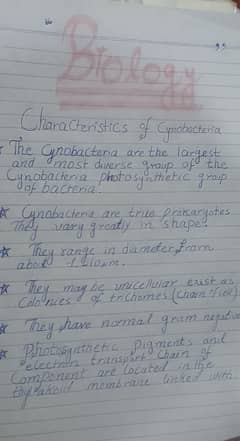 Biology
Characteristics of Cynobacteria
The Cynobacteria are the largest
and most diverse group of the
Cynobacteria Photosynthetic group
of bacteria.
Cynobacteria are true prokaryotes
They vary greatly in shape.
They range in diameter from
about
They may be unicellular exist as
Colonies of trichomes (chain
They have normal gram negative
Photosynthetic Pigments and
electron transport chain of
Component are located in the
thylakoid membrane linked with